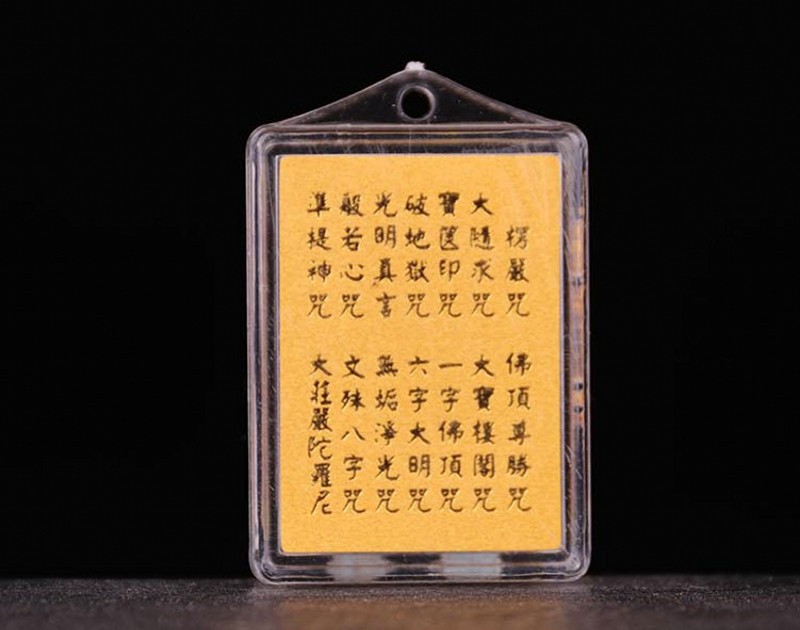 楞嚴咒
大隨求咒
寶篋印咒
破地獄咒
光明真言
般若心咒
準提神咒
佛頂尊勝咒
大寶樓閣咒
一字佛頂咒
六字大明咒
無垢淨光咒
文殊八字咒
大莊嚴陀羅尼